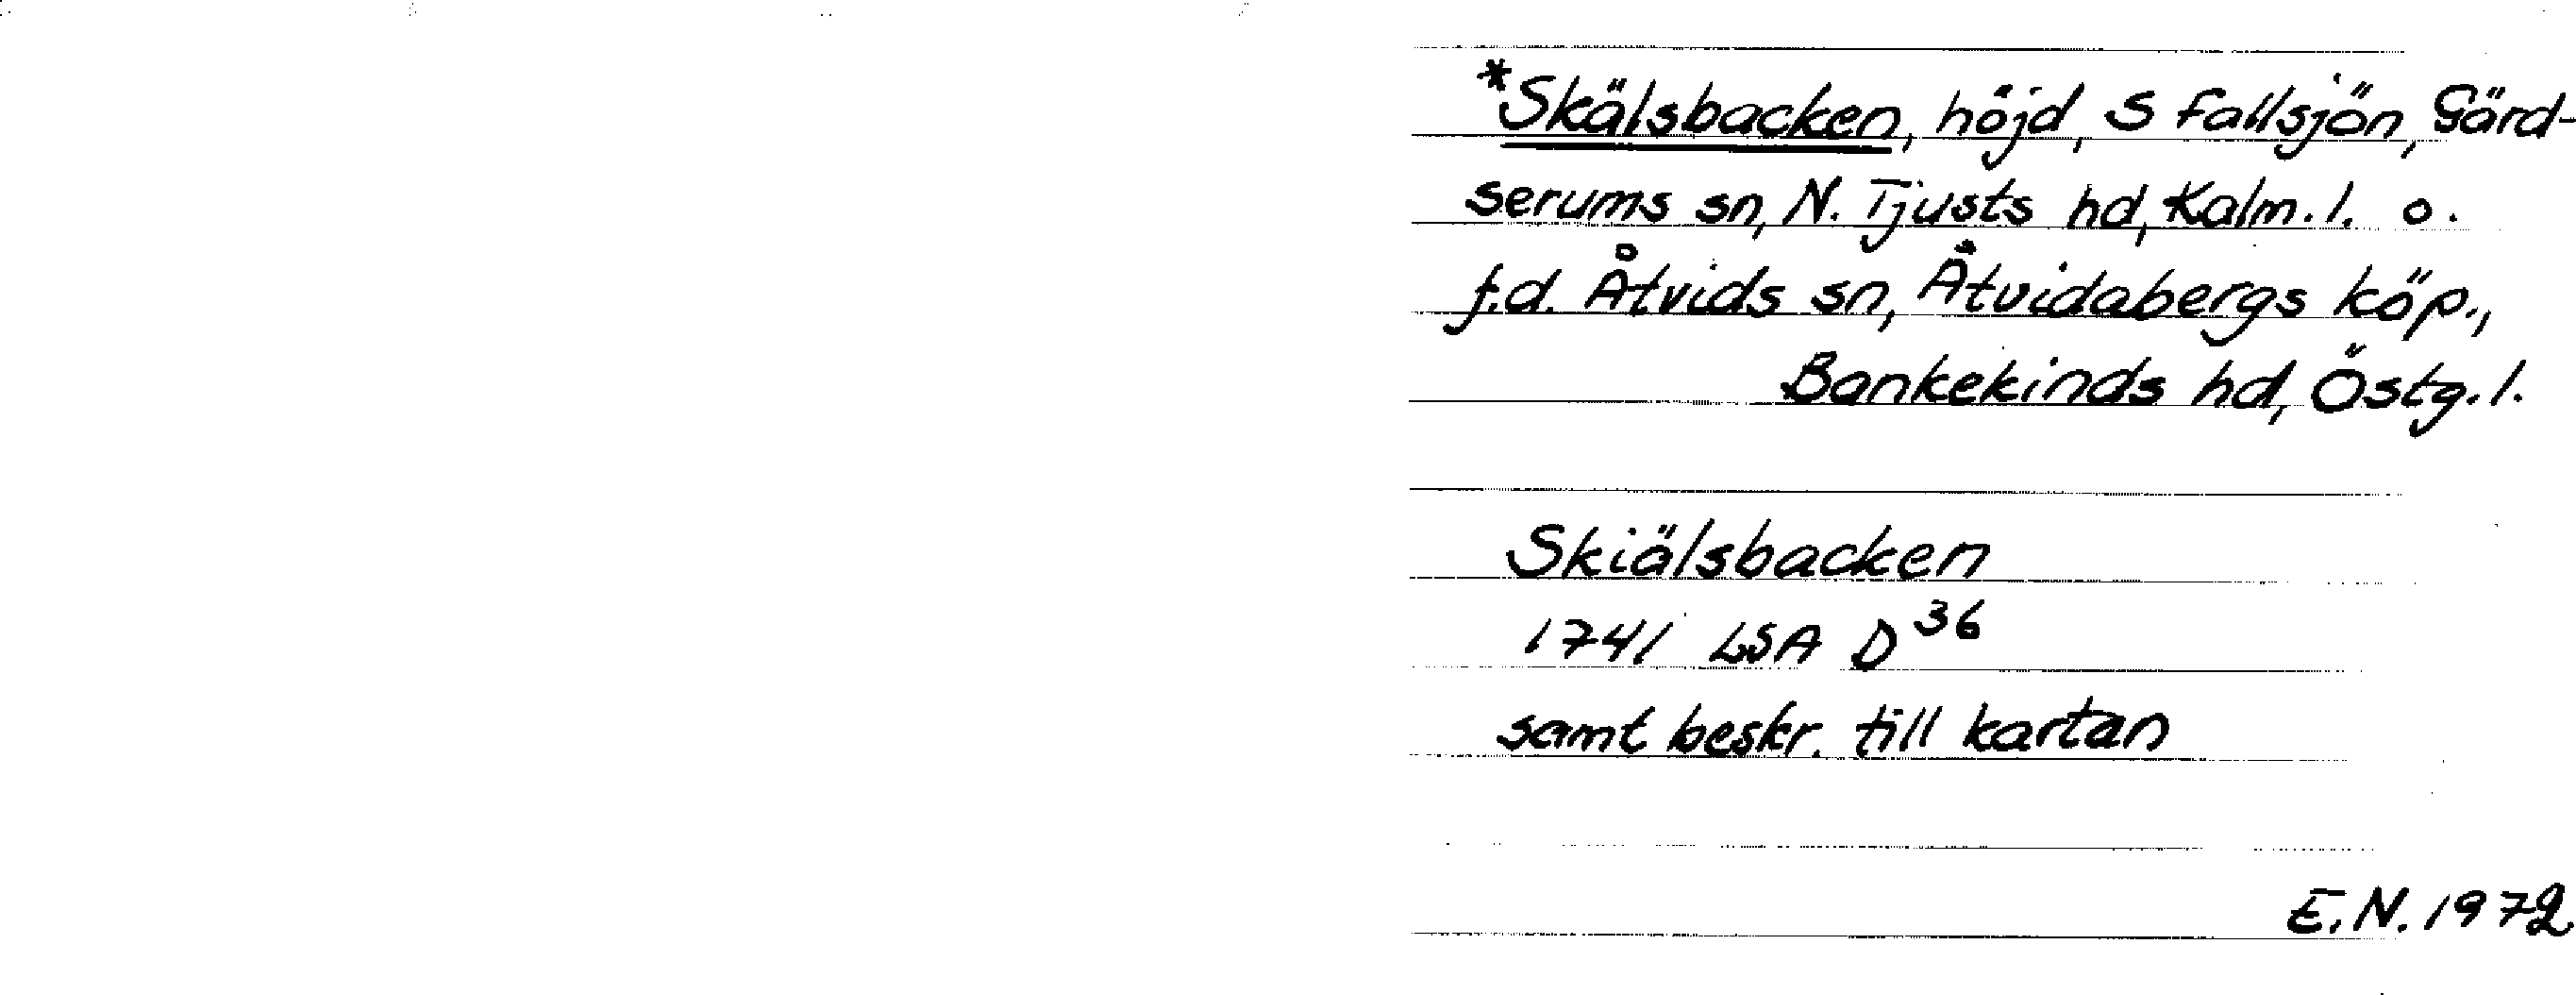 *Skälsbacken, höjd, S Fallsjön, Gärd-
serums sn, N. Tjusts hd, Kalm. l. o.
f.d. Åtvids sn, Åtvidabergs köp.,
Bankekinds hd, Östg. l.
Skiälsbacken
1741 LSA D 36
samt beskr. till kartan
E.N. 1972.